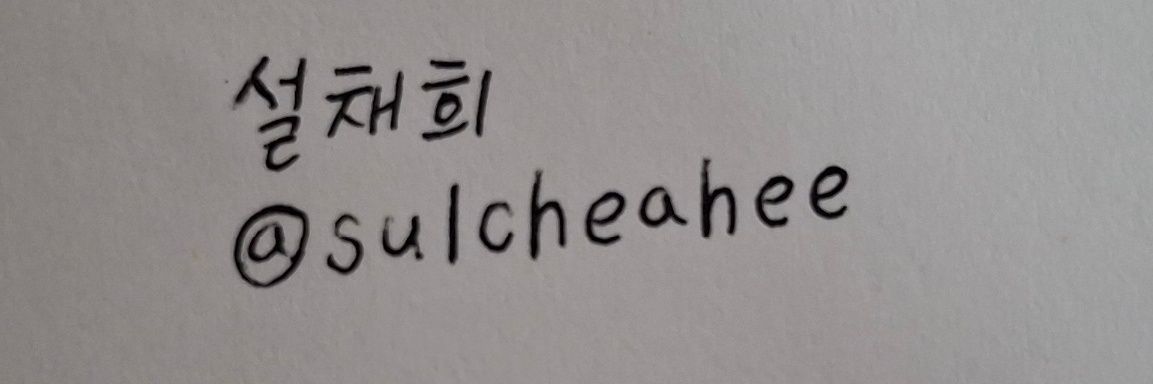 설채희
@sulcheahee